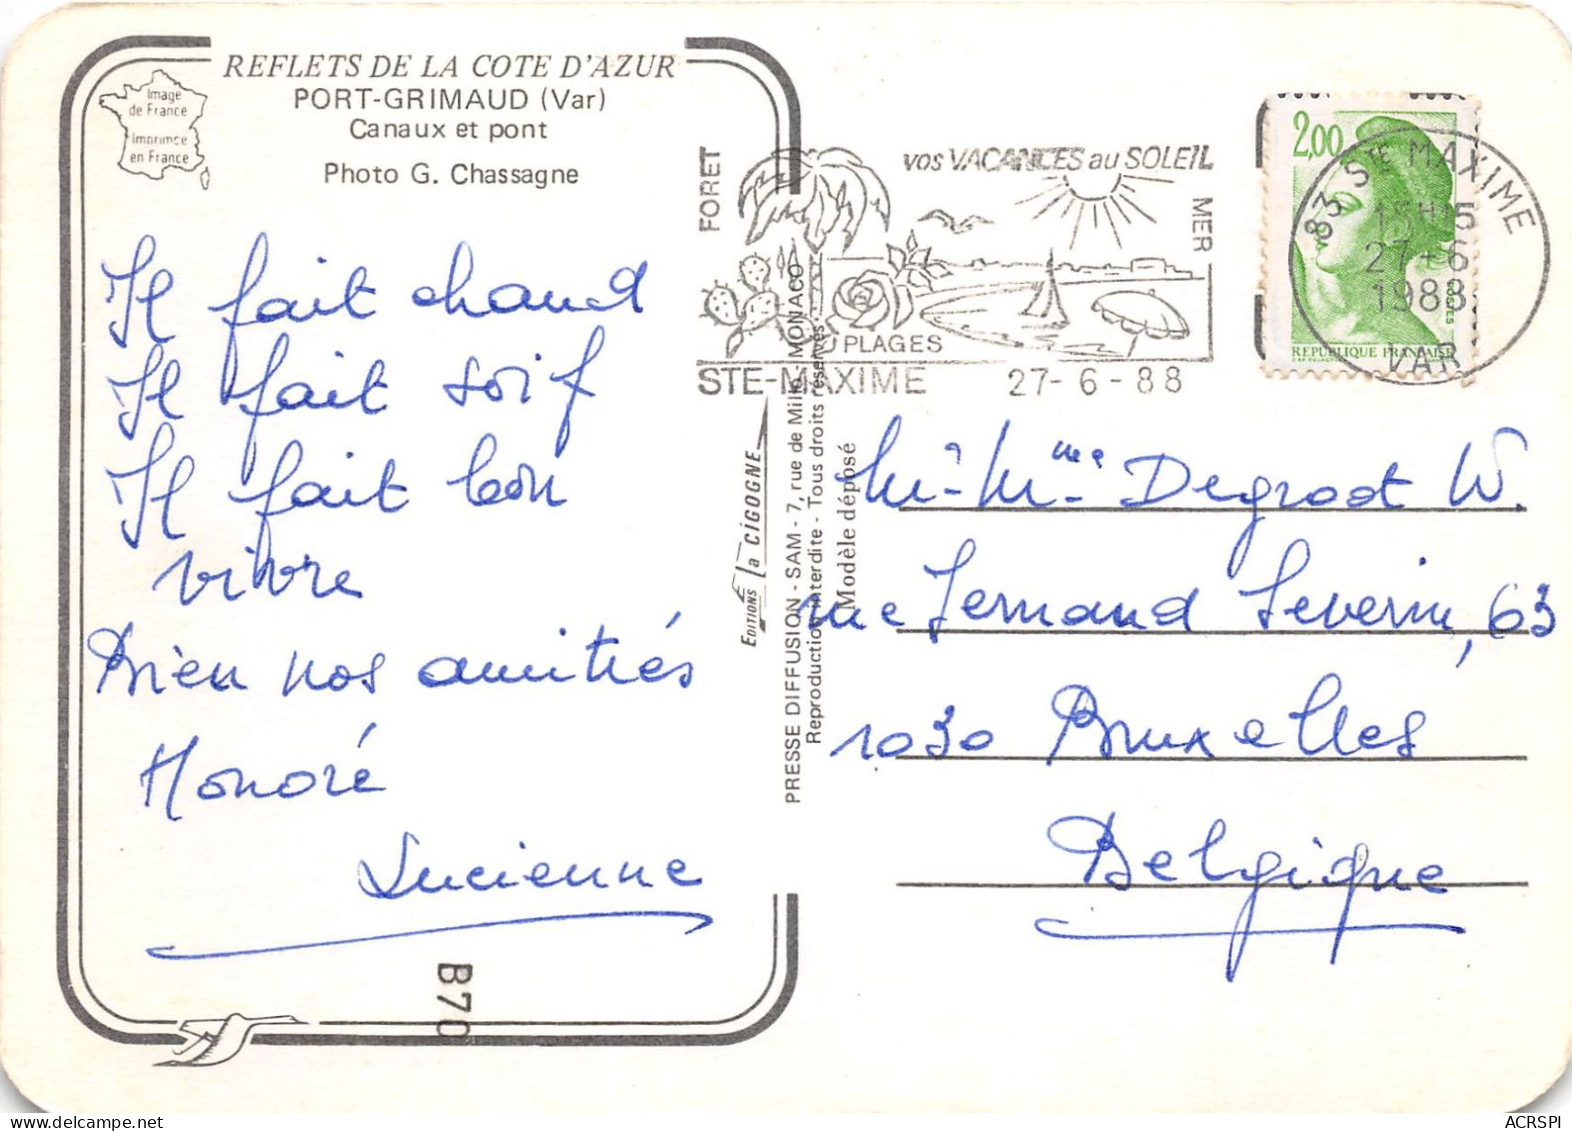 REFLETS DE LA COTE D'AZUR
PORT-GRIMAUD (Var)
Canaux et pont
Photo G. Chassagne
Image
de France
Imprimée
en France
Il fait chaud
Il fait soif
Il fait bon
vivre
Bien nos amitiés
Honoré
Lucienne
B70
EDITIONS la CIGOGNE
PRESSE DIFFUSION - SAM - 7, rue de Millo, MONACO
Reproduction interdite - Tous droits réservés
Modèle déposé
FORET
vos VACANCES au SOLEIL
MER
PLAGES
STE-MAXIME 27-6-88
2,00
POSTES
REPUBLIQUE FRANÇAISE
83 STE MAXIME
15H15
27-6
1988
VAR
M. Mme Degroot W.
rue Fernand Severin, 63
1030 Bruxelles
Belgique
ACRSPI